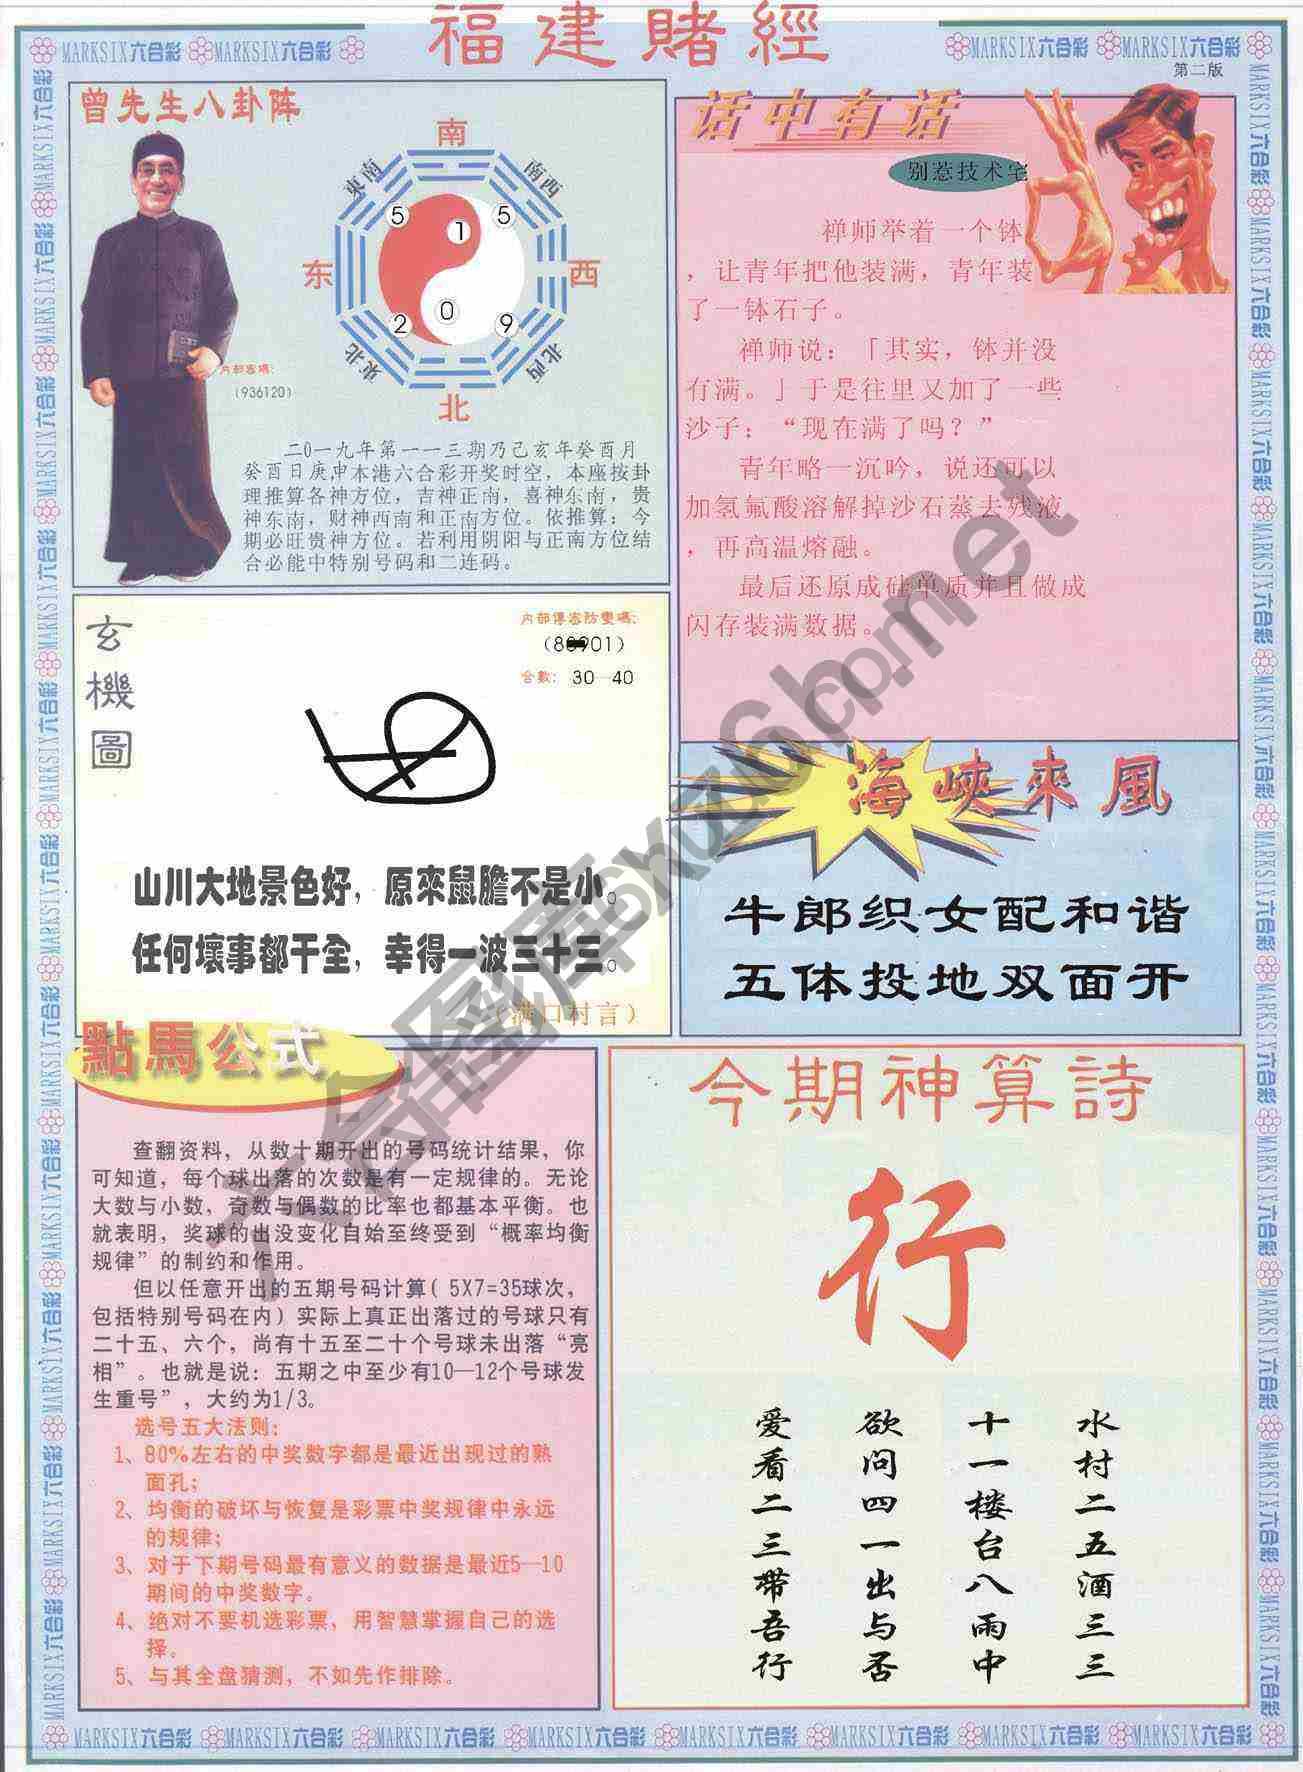 福建賭經
MARKSIX六合彩 MARKSIX六合彩
MARKSIX六合彩 MARKSIX六合彩
第二版
曾先生八卦阵
南
東南
南西
5
1
5
东
西
2
0
9
東北
北西
北
内部密碼:
(936120)
二0一九年第一一三期乃己亥年癸酉月
癸酉日庚申本港六合彩开奖时空，本座按卦
理推算各神方位，吉神正南，喜神东南，贵
神东南，财神西南和正南方位。依推算：今
期必旺贵神方位。若利用阴阳与正南方位结
合必能中特别号码和二连码。
话中有话
别惹技术宅
禅师举着一个钵
，让青年把他装满，青年装
了一钵石子。
禅师说：「其实，钵并没
有满。」于是往里又加了一些
沙子；“现在满了吗？”
青年略一沉吟，说还可以
加氢氟酸溶解掉沙石蒸去残液
，再高温熔融。
最后还原成硅单质并且做成
闪存装满数据。
玄機圖
内部傳密防變碼:
合數: 30—40
山川大地景色好，原來鼠膽不是小。
任何壞事都干全，幸得一波三十三。
（满口村言）
海峽來風
牛郎织女配和谐
五体投地双面开
點馬公式
查翻资料，从数十期开出的号码统计结果，你
可知道，每个球出落的次数是有一定规律的。无论
大数与小数，奇数与偶数的比率也都基本平衡。也
就表明，奖球的出没变化自始至终受到“概率均衡
规律”的制约和作用。
但以任意开出的五期号码计算( 5X7=35球次，
包括特别号码在内）实际上真正出落过的号球只有
二十五、六个，尚有十五至二十个号球未出落“亮
相”。也就是说：五期之中至少有10—12个号球发
生重号”，大约为1/3。
选号五大法则：
1、80%左右的中奖数字都是最近出现过的熟
面孔；
2、均衡的破坏与恢复是彩票中奖规律中永远
的规律；
3、对于下期号码最有意义的数据是最近5—10
期间的中奖数字。
4、绝对不要机选彩票，用智慧掌握自己的选
择。
5、与其全盘猜测，不如先作排除。
今期神算詩
行
水村二五酒三三
十一楼台八雨中
欲问四一出与否
爱看二三带吾行
MARKSIX六合彩 MARKSIX六合彩 MARKSIX六合彩 MARKSIX六合彩 MARKSIX六合彩 MARKSIX六合彩 MARKSIX六合彩 MARKSIX六合彩